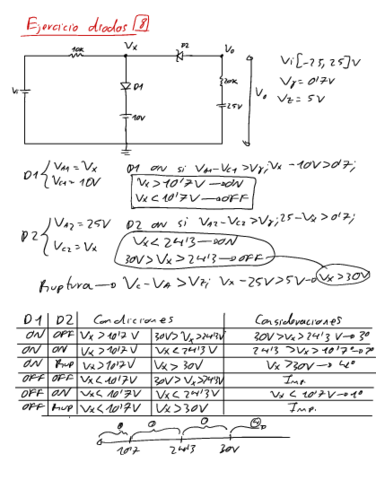 Ejercicio diodos 8
10K Vx D2 Vo
Vi D1 20K
10V 25V Vo
Vi[-25, 25]V
Vγ = 0'7V
Vz = 5V
D1 { VA1 = Vx
VC1 = 10V
D1 on si VA1 - VC1 > Vγ; Vx - 10V > 0'7;
Vx > 10'7V → ON
Vx < 10'7V → OFF
D2 { VA2 = 25V
VC2 = Vx
D2 on si VA2 - VC2 > Vγ; 25 - Vx > 0'7;
Vx < 24'3 → ON
30V > Vx > 24'3 → OFF
Ruptura → VC - VA > Vz; Vx - 25V > 5V → Vx > 30V
D1 D2 Condiciones Consideraciones
ON OFF Vx > 10'7V 30V > Vx > 24'3V 30V > Vx > 24'3V → 3º
ON ON Vx > 10'7V Vx < 24'3V 24'3 > Vx > 10'7 → 2º
ON Rup Vx > 10'7V Vx > 30V Vx > 30V → 4º
OFF OFF Vx < 10'7V 30V > Vx > 24'3V Imp.
OFF ON Vx < 10'7V Vx < 24'3V Vx < 10'7V → 1º
OFF Rup Vx < 10'7V Vx > 30V Imp.
10'7 24'3 30V